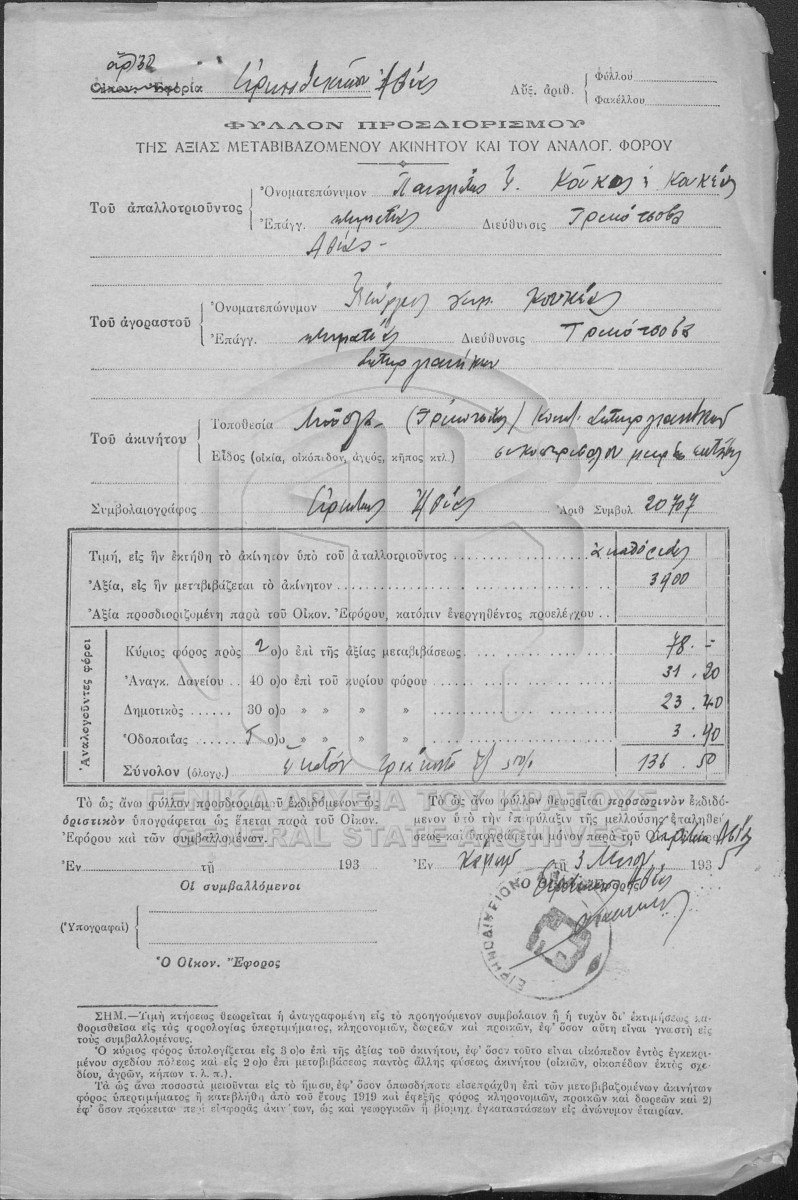 ἀρ) 32
Οἰκον. Ἐφορία Ἀβίας
Αὔξ. ἀριθ. Φύλλου
Φακέλλου
ΦΥΛΛΟΝ ΠΡΟΣΔΙΟΡΙΣΜΟΥ
ΤΗΣ ΑΞΙΑΣ ΜΕΤΑΒΙΒΑΖΟΜΕΝΟΥ ΑΚΙΝΗΤΟΥ ΚΑΙ ΤΟΥ ΑΝΑΛΟΓ. ΦΟΡΟΥ
Τοῦ ἀπαλλοτριοῦντος
Ὀνοματεπώνυμον Κοῦκος ἢ Κουκέας
Ἐπάγγ. κτηματίας Διεύθυνσις Τρικότσοβα
Ἀβίας
Τοῦ ἀγοραστοῦ
Ὀνοματεπώνυμον Γεώργιος Κουκέας
Ἐπάγγ. κτηματίας Διεύθυνσις Τρικότσοβα
Τοῦ ἀκινήτου
Τοποθεσία
Εἶδος (οἰκία, οἰκόπεδον, ἀγρός, κῆπος κτλ.)
Συμβολαιογράφος Ἀβίας Ἀριθ Συμβολ 20707
Τιμή, εἰς ἣν ἐκτήθη τὸ ἀκίνητον ὑπὸ τοῦ ἀπαλλοτριοῦντος
Ἀξία, εἰς ἣν μεταβιβάζεται τὸ ἀκίνητον 3900
Ἀξία προσδιοριζομένη παρὰ τοῦ Οἰκον. Ἐφόρου, κατόπιν ἐνεργηθέντος προελέγχου
Ἀναλογοῦντες φόροι
Κύριος φόρος πρὸς 2 ο)ο ἐπὶ τῆς ἀξίας μεταβιβάσεως 78.-
Ἀναγκ. Δανείου 40 ο)ο ἐπὶ τοῦ κυρίου φόρου 31.20
Δημοτικὸς 30 ο)ο » » » » 23.40
Ὁδοποιΐας 5 ο)ο » » » » 3.90
Σύνολον (ὁλογρ.) Ἑκατὸν τριάκοντα ἓξ 50% 136.50
ΓΕΝΙΚΑ ΑΡΧΕΙΑ ΤΟΥ ΚΡΑΤΟΥΣ
GENERAL STATE ARCHIVES
Τὸ ὡς ἄνω φύλλον προσδιορισμοῦ ἐκδιδόμενον ὡς
ὁριστικὸν ὑπογράφεται ὡς ἕπεται παρὰ τοῦ Οἰκον.
Ἐφόρου καὶ τῶν συμβαλλομένων.
Ἐν τῇ 193
Οἱ συμβαλλόμενοι
(Ὑπογραφαὶ)
Ὁ Οἰκον. Ἔφορος
Τὸ ὡς ἄνω φύλλον θεωρεῖται προσωρινὸν ἐκδιδό-
μενον ὑπὸ τὴν ἐπιφύλαξιν τῆς μελλούσης ἐξαληθεύ-
σεως καὶ ὑπογράφεται μόνον παρὰ τοῦ Ἀβίας
Ἐν τῇ 3 1935
Ὁ Οἰκον. Ἔφορος
Ἀβίας
ΕΙΡΗΝΟΔΙΚΕΙΟΝ
ΣΗΜ.—Τιμὴ κτήσεως θεωρεῖται ἡ ἀναγραφομένη εἰς τὸ προηγούμενον συμβόλαιον ἢ ἡ τυχὸν δι' ἐκτιμήσεως κα-
θορισθεῖσα εἰς τὰς φορολογίας ὑπερτιμήματος, κληρονομιῶν, δωρεῶν καὶ προικῶν, ἐφ' ὅσον αὕτη εἶναι γνωστὴ εἰς
τοὺς συμβαλλομένους.
Ὁ κύριος φόρος ὑπολογίζεται εἰς 3 ο)ο ἐπὶ τῆς ἀξίας τοῦ ἀκινήτου, ἐφ' ὅσον τοῦτο εἶναι οἰκόπεδον ἐντὸς ἐγκεκρι-
μένου σχεδίου πόλεως καὶ εἰς 2 ο)ο ἐπὶ μεταβιβάσεως παντὸς ἄλλης φύσεως ἀκινήτου (οἰκιῶν, οἰκοπέδων ἐκτὸς σχε-
δίου, ἀγρῶν, κήπων τ. λ. π.).
Τὰ ὡς ἄνω ποσοστὰ μειοῦνται εἰς τὸ ἥμισυ, ἐφ' ὅσον ὁπωσδήποτε εἰσεπράχθη ἐπὶ τῶν μεταβιβαζομένων ἀκινήτων
φόρος ὑπερτιμήματος ἢ κατεβλήθη ἀπὸ τοῦ ἔτους 1919 καὶ ἐφεξῆς φόρος κληρονομιῶν, προικῶν καὶ δωρεῶν καὶ 2)
ἐφ' ὅσον πρόκειται περὶ εἰσφορᾶς ἀκινήτων, ὡς καὶ γεωργικῶν ἢ βιομηχ. ἐγκαταστάσεων εἰς ἀνώνυμον ἑταιρίαν.